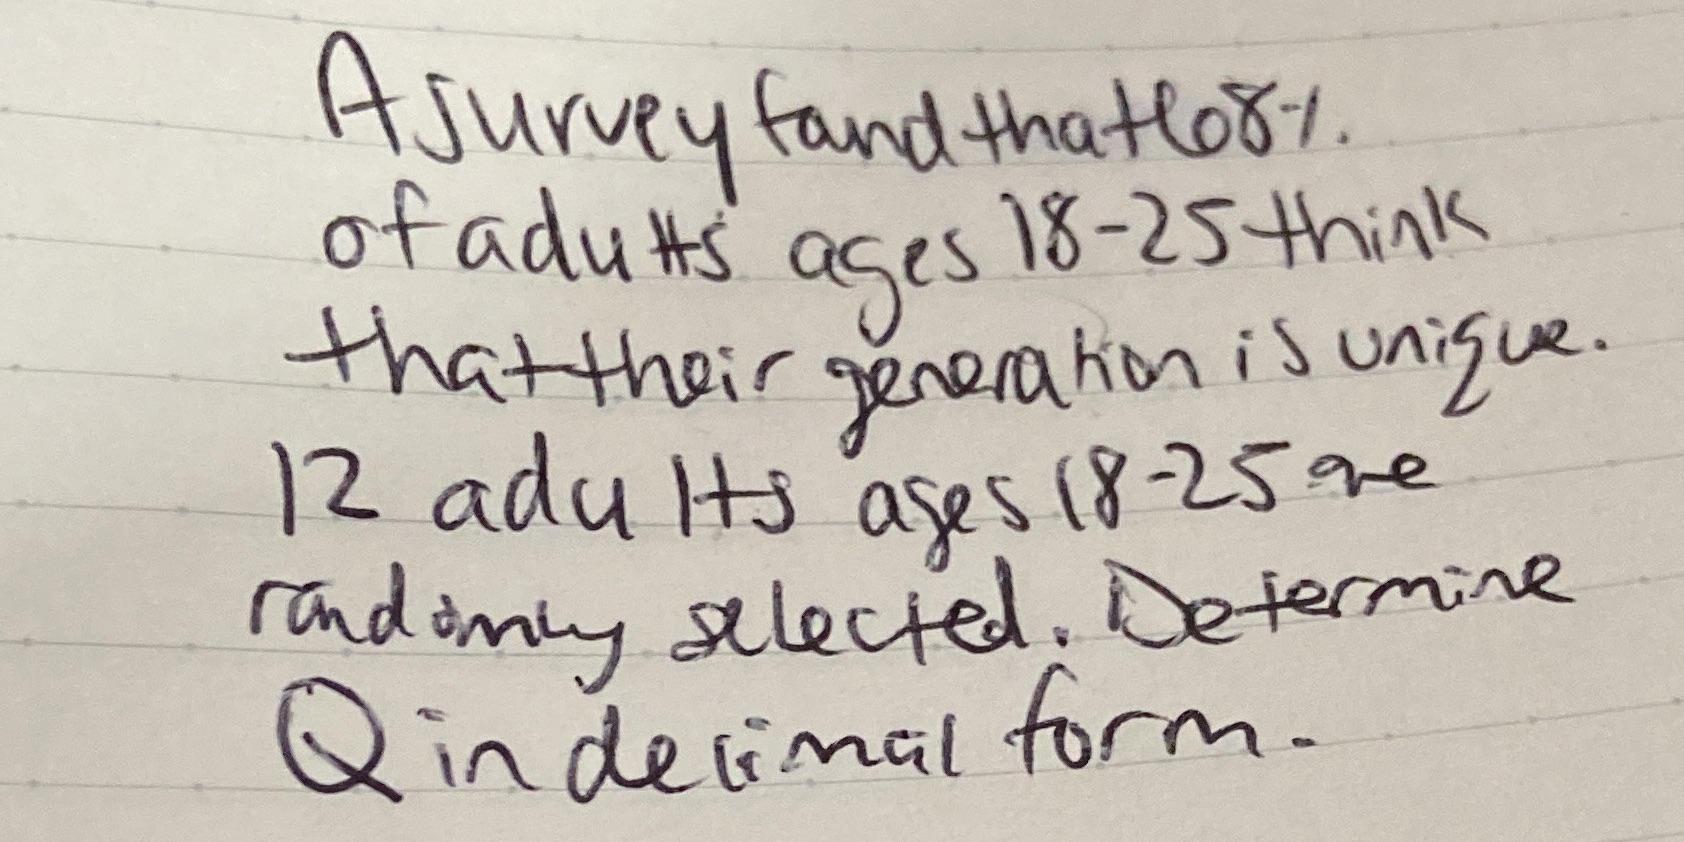 A survey found that 68%
of adults ages 18-25 think
that their generation is unique.
12 adults ages 18-25 are
randomly selected. Determine
Q in decimal form.